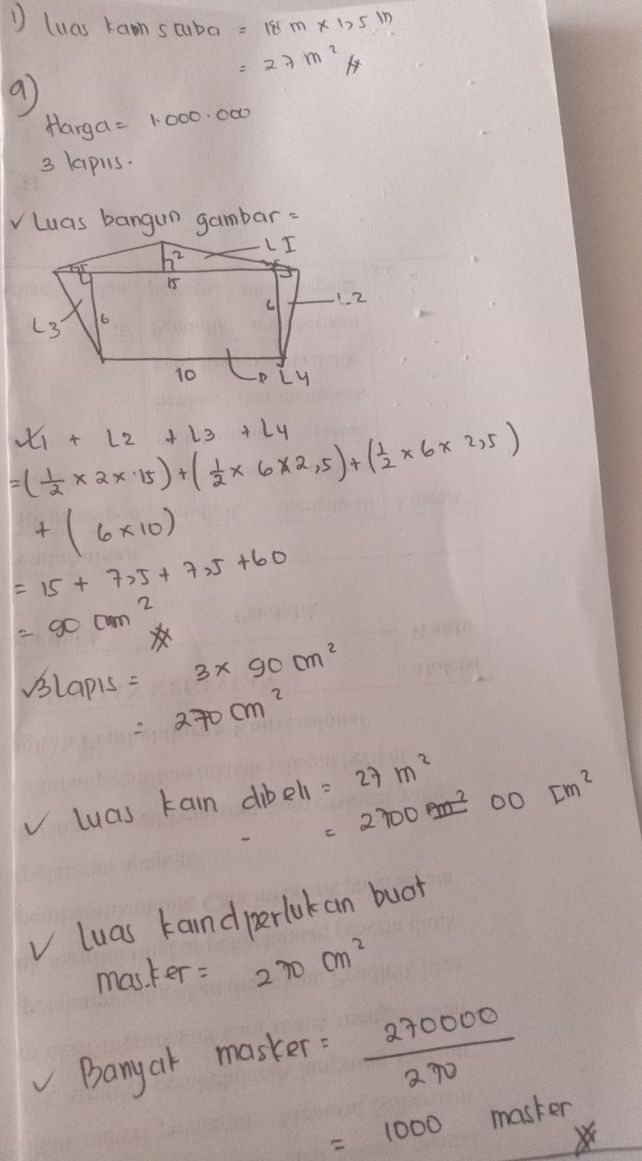 1) Luas kain scuba = 18 m x 1,5 m
= 27 m² //
a)
Harga = 1.000.000
3 lapis.
✓ Luas bangun gambar =
L I
2
15
L3 6 6 L2
10 L4
L1 + L2 + L3 + L4
= (1/2 x 2 x 15) + (1/2 x 6 x 2,5) + (1/2 x 6 x 2,5)
+ (6 x 10)
= 15 + 7,5 + 7,5 + 60
= 90 cm² //
✓ 3 Lapis = 3 x 90 cm²
= 270 cm²
✓ luas kain dibeli = 27 m²
= 2700 00 cm²
✓ luas kain dperlukan buat
masker = 270 cm²
✓ Banyak masker = 270000
270
= 1000 masker //